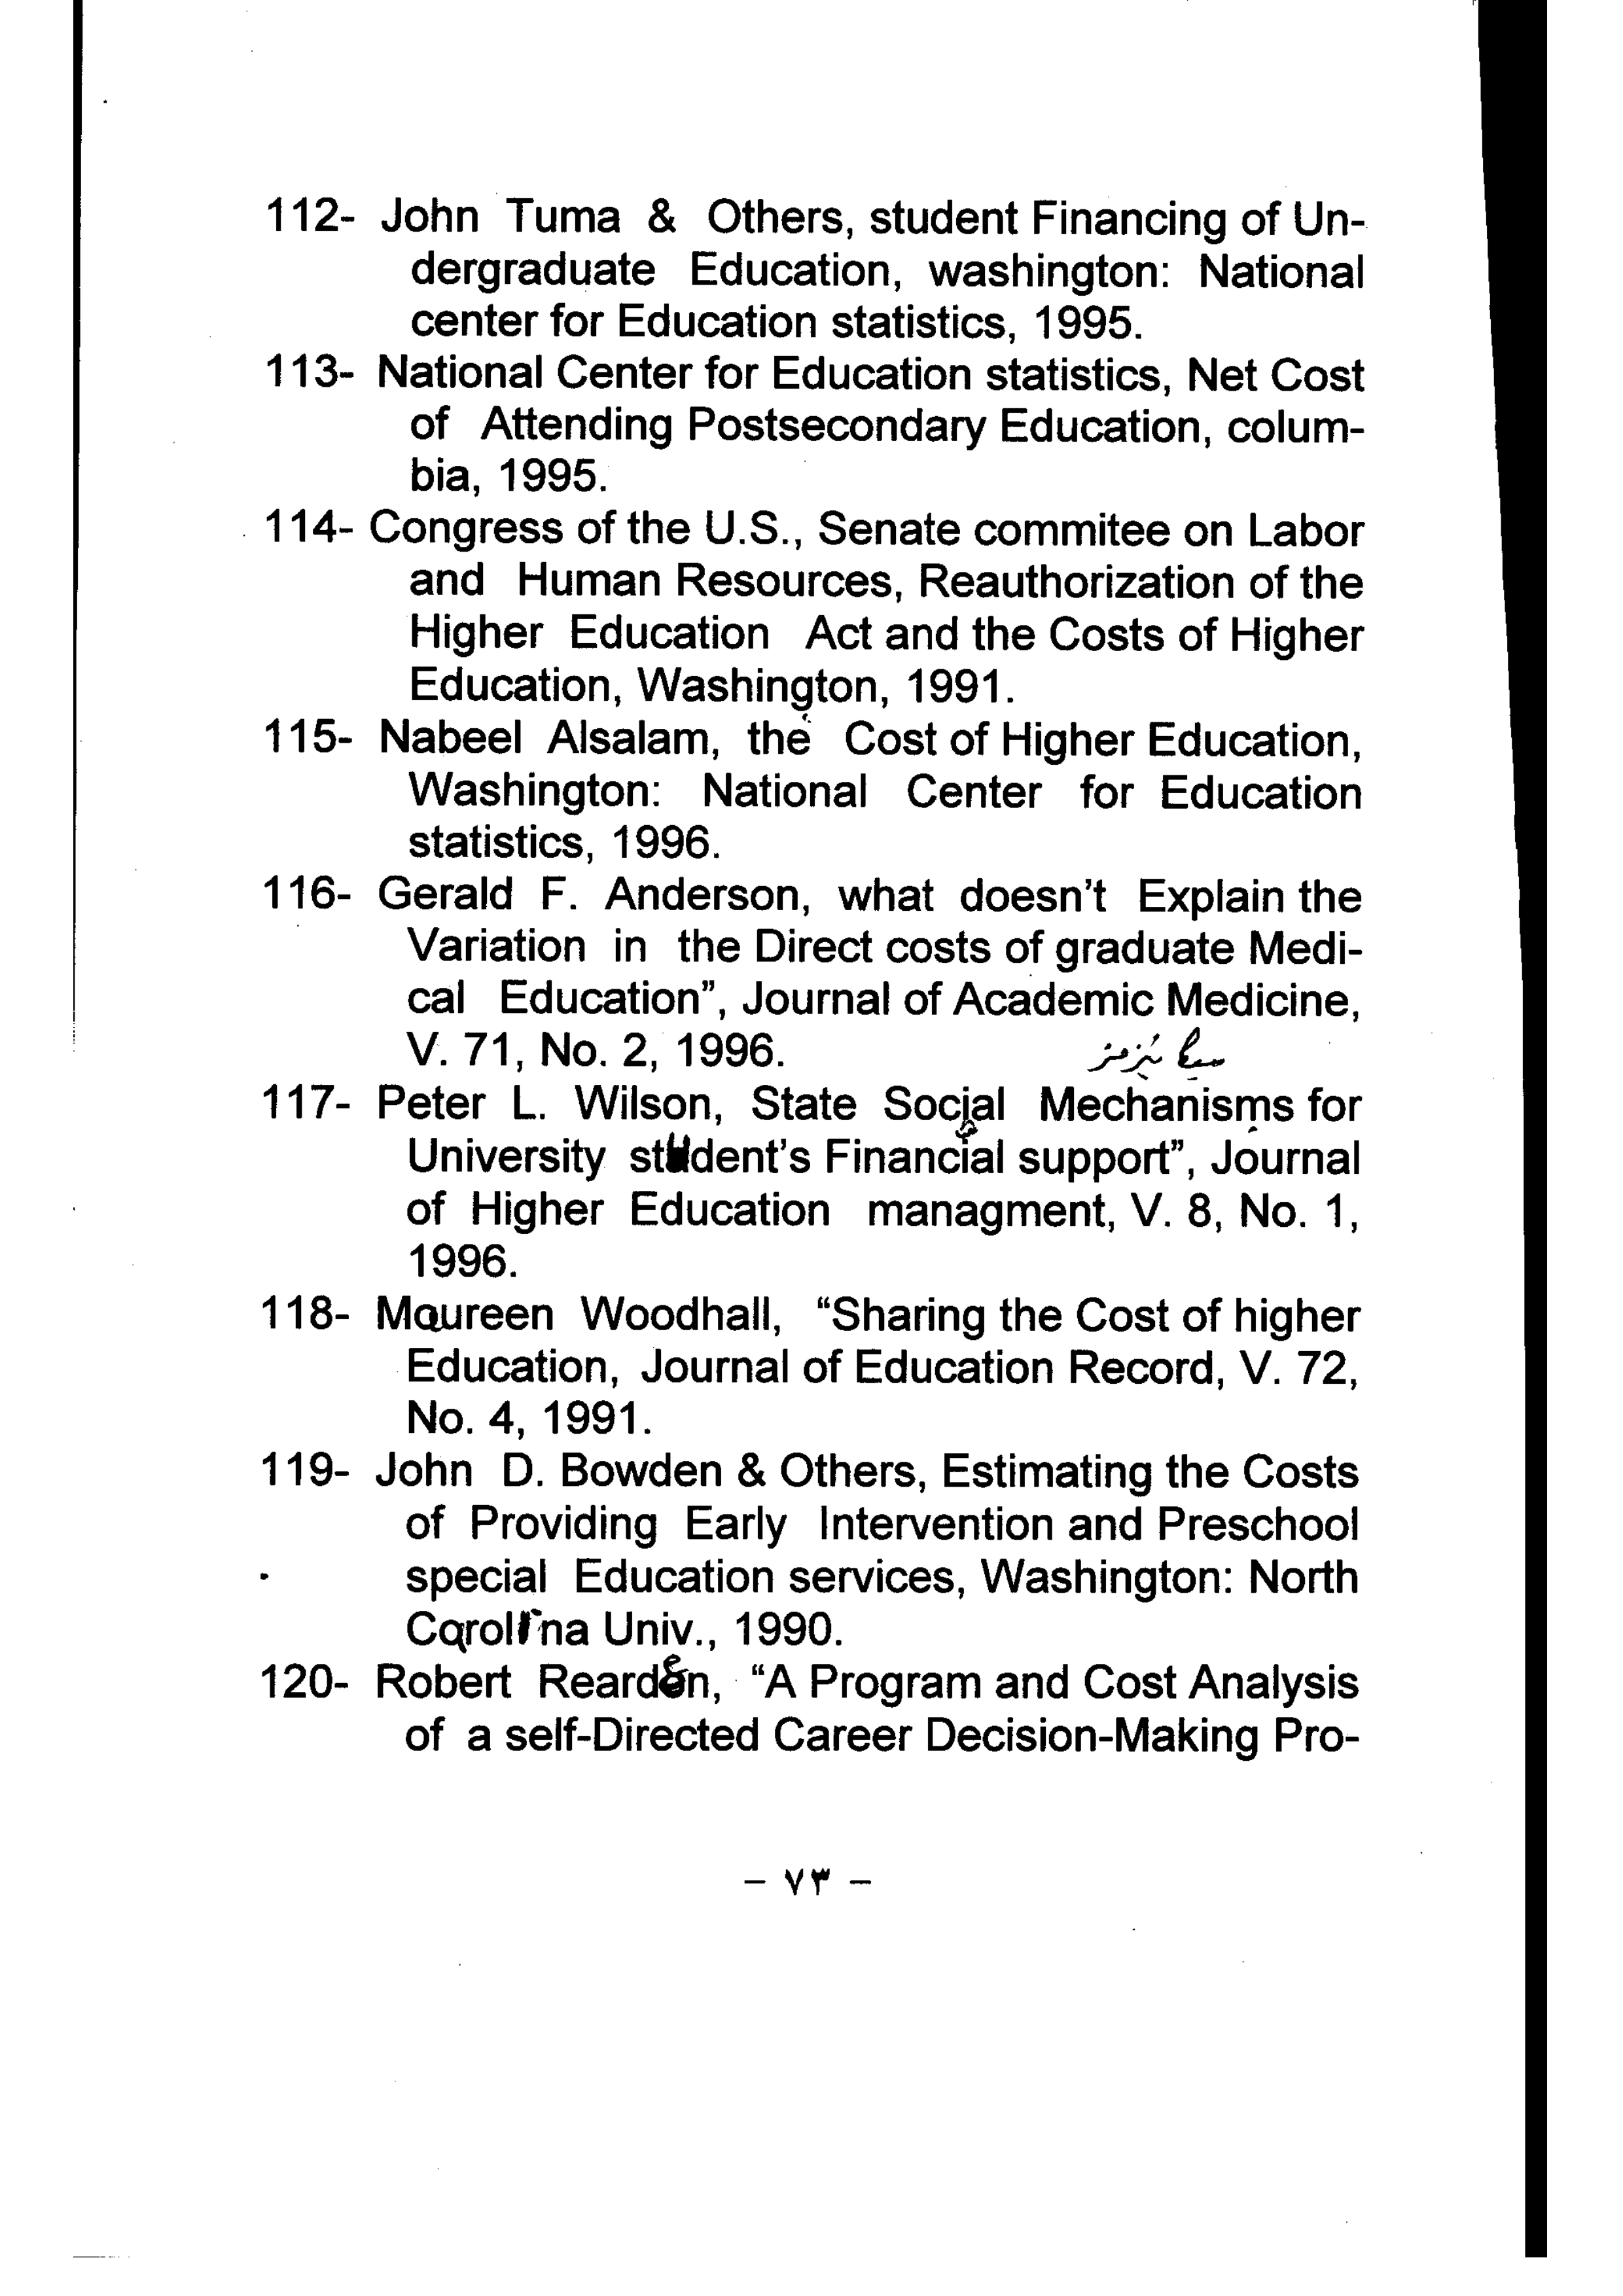 112- John Tuma & Others, student Financing of Un-
dergraduate Education, washington: National
center for Education statistics, 1995.
113- National Center for Education statistics, Net Cost
of Attending Postsecondary Education, colum-
bia, 1995.
114- Congress of the U.S., Senate commitee on Labor
and Human Resources, Reauthorization of the
Higher Education Act and the Costs of Higher
Education, Washington, 1991.
115- Nabeel Alsalam, the Cost of Higher Education,
Washington: National Center for Education
statistics, 1996.
116- Gerald F. Anderson, what doesn't Explain the
Variation in the Direct costs of graduate Medi-
cal Education”, Journal of Academic Medicine,
V. 71, No. 2, 1996.
117- Peter L. Wilson, State Social Mechanisms for
University student's Financial support”, Journal
of Higher Education managment, V. 8, No. 1,
1996.
118- Maureen Woodhall, “Sharing the Cost of higher
Education, Journal of Education Record, V. 72,
No. 4, 1991.
119- John D. Bowden & Others, Estimating the Costs
of Providing Early Intervention and Preschool
special Education services, Washington: North
Carolina Univ., 1990.
120- Robert Reardon, “A Program and Cost Analysis
of a self-Directed Career Decision-Making Pro-
– ٧٣ –